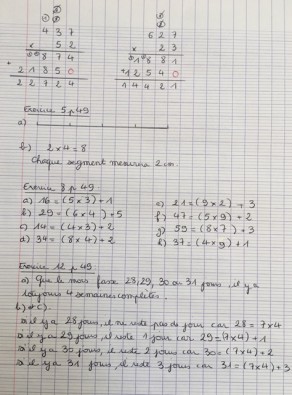 437
x 52
874
+ 21850
22724
627
x 23
1881
+ 12540
14421
Exercice 5 p 49
a)
b) 2 x 4 = 8
Chaque segment mesure 2 cm.
Exercice 8 p 49
a) 16 = (5 x 3) + 1
b) 29 = (6 x 4) + 5
c) 14 = (4 x 3) + 2
d) 34 = (8 x 4) + 2
e) 21 = (9 x 2) + 3
f) 47 = (5 x 9) + 2
g) 59 = (8 x 7) + 3
h) 37 = (4 x 9) + 1
Exercice 12 p 49
a) Que le mois fasse 28, 29, 30 ou 31 jours, il y a
toujours 4 semaines complètes.
b) et c)
s'il y a 28 jours, il ne reste pas de jour car 28 = 7 x 4
s'il y a 29 jours, il reste 1 jour car 29 = (7 x 4) + 1
s'il y a 30 jours, il reste 2 jours car 30 = (7 x 4) + 2
s'il y a 31 jours, il reste 3 jours car 31 = (7 x 4) + 3